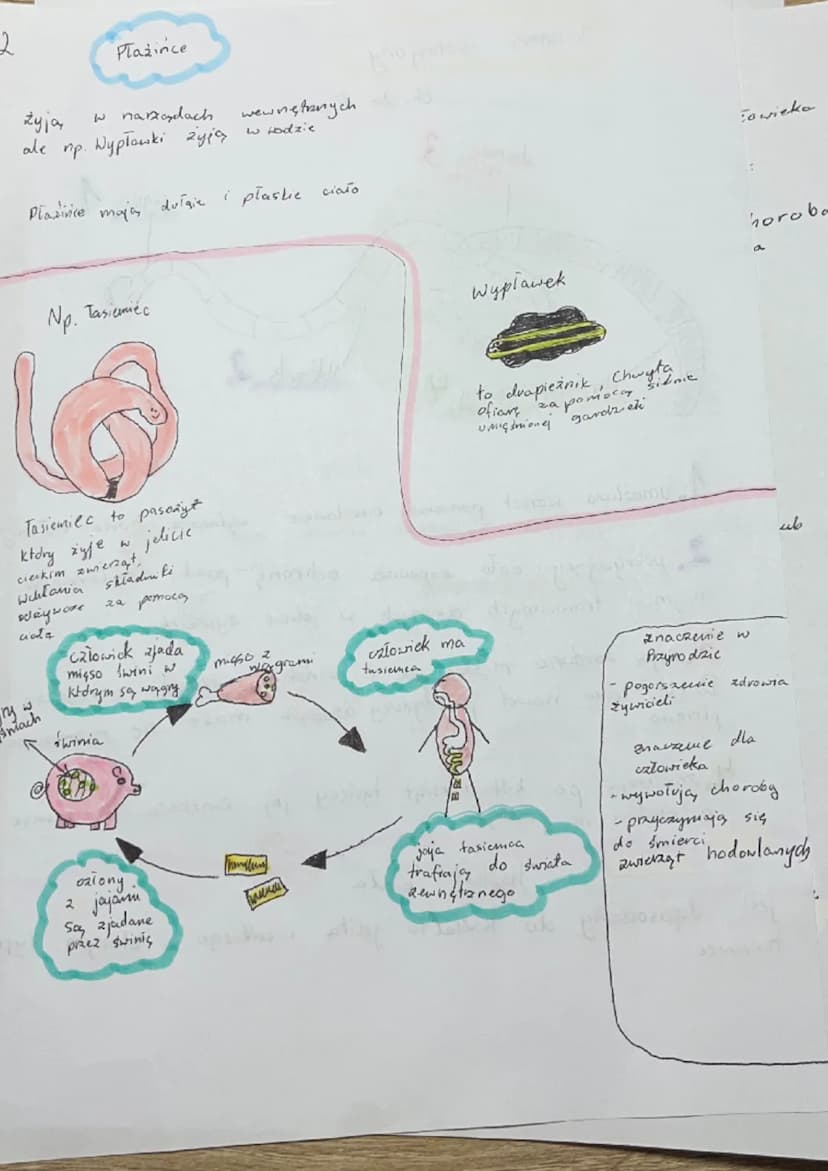 2
Płazińce
żyją w narządach wewnętrznych
ale np. Wypławki żyją w wodzie
Płazińce mają długie i płaskie ciało
Np. Tasiemiec
Tasiemiec to pasożyt
który żyje w jelicie
cienkim zwierząt.
Wchłania składniki
odżywcze za pomocą
ciała
Wypławek
to drapieżnik, Chwyta
ofiarę za pomocą silnie
umięśnionej gardzieli
człowiek zjada
mięso świni w
którym są wągry
mięso z
wągrami
człowiek ma
tasiemca
jaja tasiemca
trafiają do świata
zewnętrznego
człony
z jajami
są zjadane
przez świnię
świnia
w
znaczenie w
Przyrodzie
- pogorszenie zdrowia
żywicieli
znaczenie dla
człowieka
- wywołują chorobę
- przyczyniają się
do śmierci
zwierząt hodowlanych
owieka
horoba
a
ub